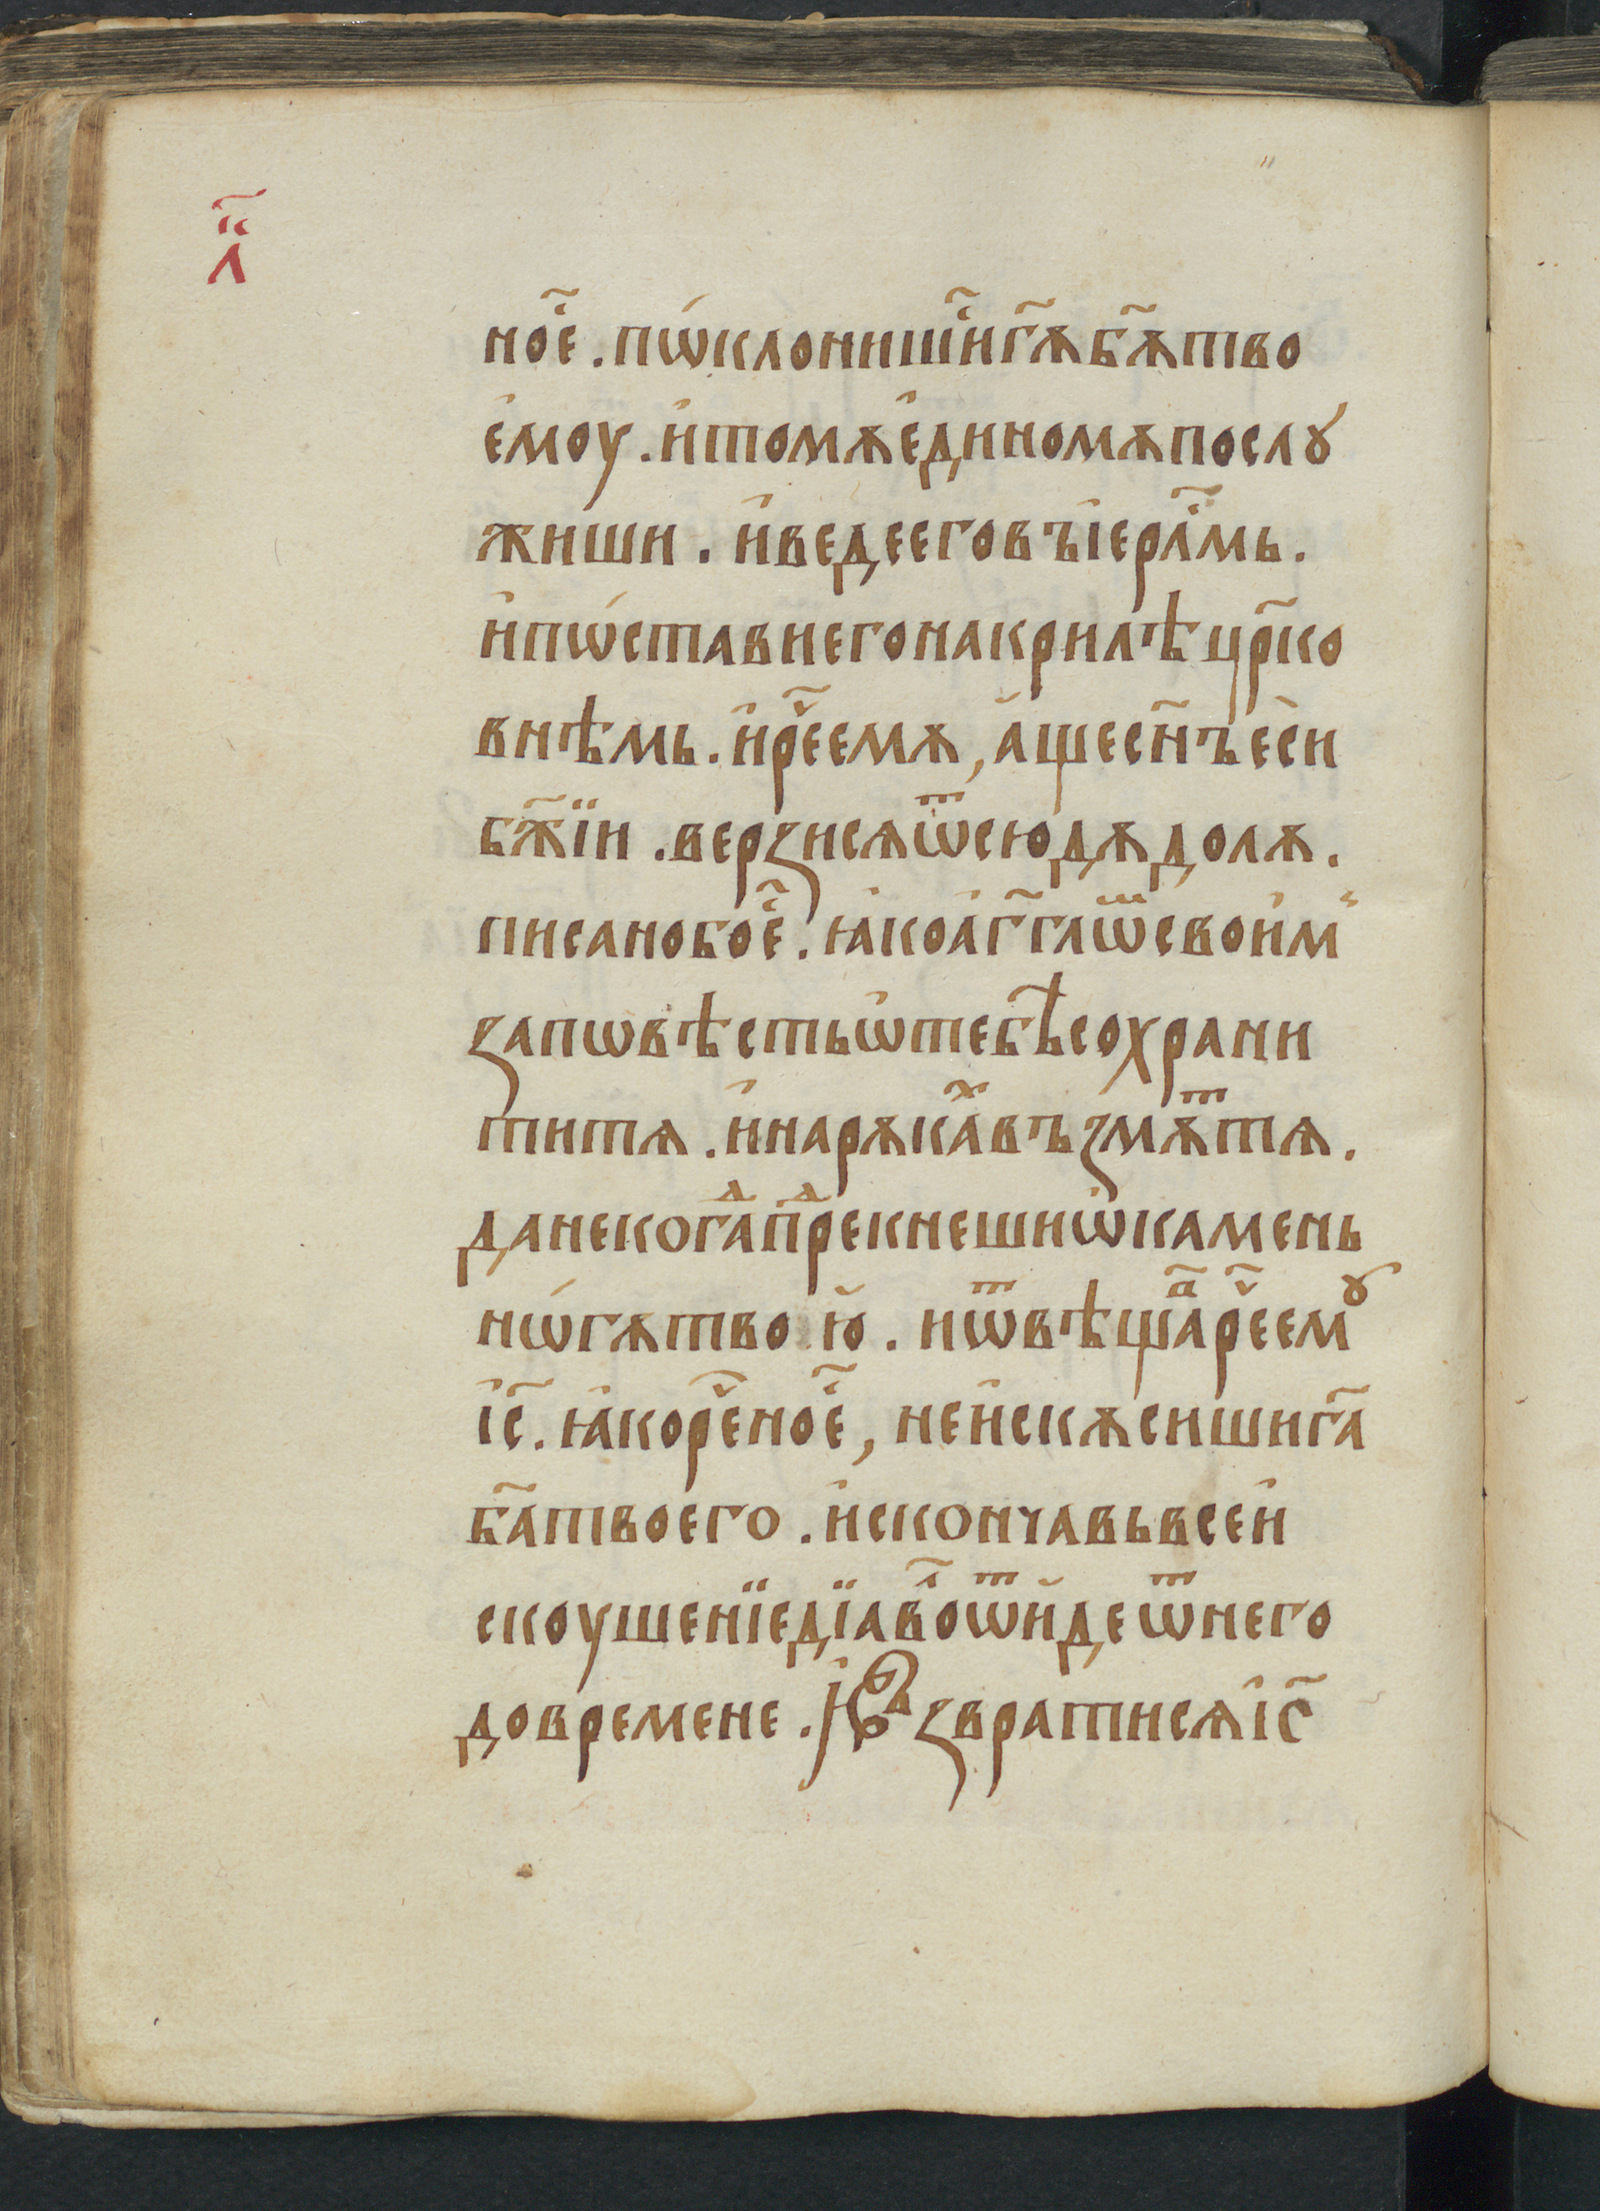 л҃
ноⷭ҇е . пѡ́клонишиⷭ҇ и҆ г҃ѫ б҃ѫ тво
е҆моу . и҆ томѫ е҆диномѫ послꙋ
жиши . и҆ веде его въ і҆ерⷭ҇лмь .
и҆ пѡ́стави его на крилѣ цр҃ко
внѣмь . и҆ рⷱ҇е емѫ , а҆ще сн҃ъ е҆си
бж҃їи . верзисѧ ѿсюдѫ долѫ .
писано боⷭ҇ е . ꙗ҆ко а҆г҃гл ѿ свои҆м
запѡвѣсть ѡ҆ тебѣ сохрани
ти тѧ . и҆ на рѫкаⷯ възмѫⷮ тѧ .
да не когаⷣ прⷣекнеши ѡ҆ камень
нѡ́гѫ твою̀ . и ѿвѣщаⷡ҇ рⷱ҇е емꙋ
і҆с҃ . ꙗ҆ко рⷱ҇ено е҆ⷭ , не и҆скѫсиши г҃а
б҃а твоего . и҆ скончавь все и҆
скоушенїе дїавоⷧ҇ ѿи҆де ѿ него
до времене . И҆ възвратисѧ і҆с҃